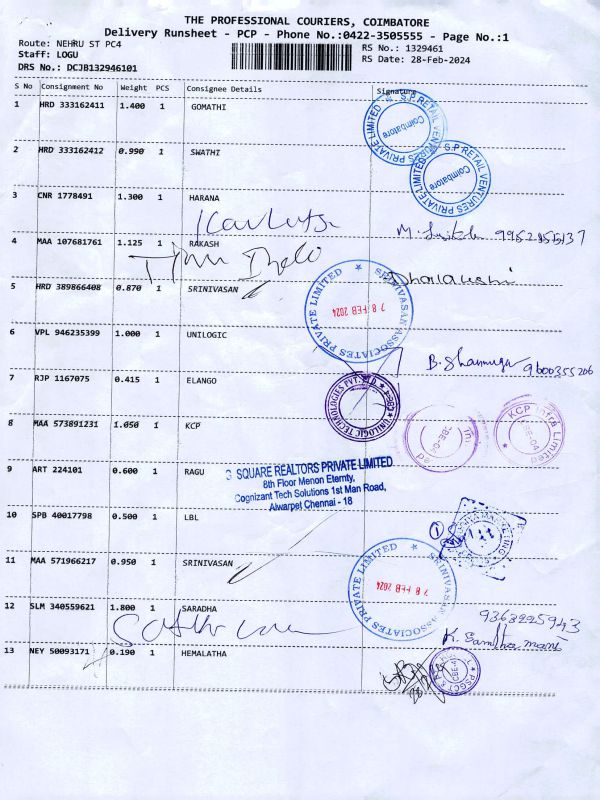 THE PROFESSIONAL COURIERS, COIMBATORE
Delivery Runsheet - PCP - Phone No.:0422-3505555 - Page No.:1
Route: NEHRU ST PC4
RS No.: 1329461
Staff: LOGU
RS Date: 28-Feb-2024
DRS No.: DCJB132946101
S No Consignment No Weight PCS Consignee Details Signature
1 HRD 333162411 1.400 1 GOMATHI
S.P RETAIL VENTURES PRIVATE LIMITED
Coimbatore
2 HRD 333162412 0.990 1 SWATHI
S.P RETAIL VENTURES PRIVATE LIMITED
Coimbatore
3 CNR 1778491 1.300 1 HARANA
4 MAA 107681761 1.125 1 RAKASH
5 HRD 389866408 0.870 1 SRINIVASAN
SRINIVASAN ASSOCIATES PRIVATE LIMITED
28 FEB 2024
6 VPL 946235399 1.000 1 UNILOGIC
9600355206
7 RJP 1167075 0.415 1 ELANGO
UNILOGIC TECHNOLOGIES PVT. LTD
8 MAA 573891231 1.050 1 KCP
KCP Infra Limited
9 ART 224101 0.600 1 RAGU
SQUARE REALTORS PRIVATE LIMITED
8th Floor Menon Eternty,
Cognizant Tech Solutions 1st Man Road,
Alwarpet Chennai - 18
10 SPB 40017798 0.500 1 LBL
11 MAA 571966217 0.950 1 SRINIVASAN
SRINIVASAN ASSOCIATES PRIVATE LIMITED
28 FEB 2024
12 SLM 340559621 1.800 1 SARADHA
9363225943
13 NEY 50093171 0.190 1 HEMALATHA